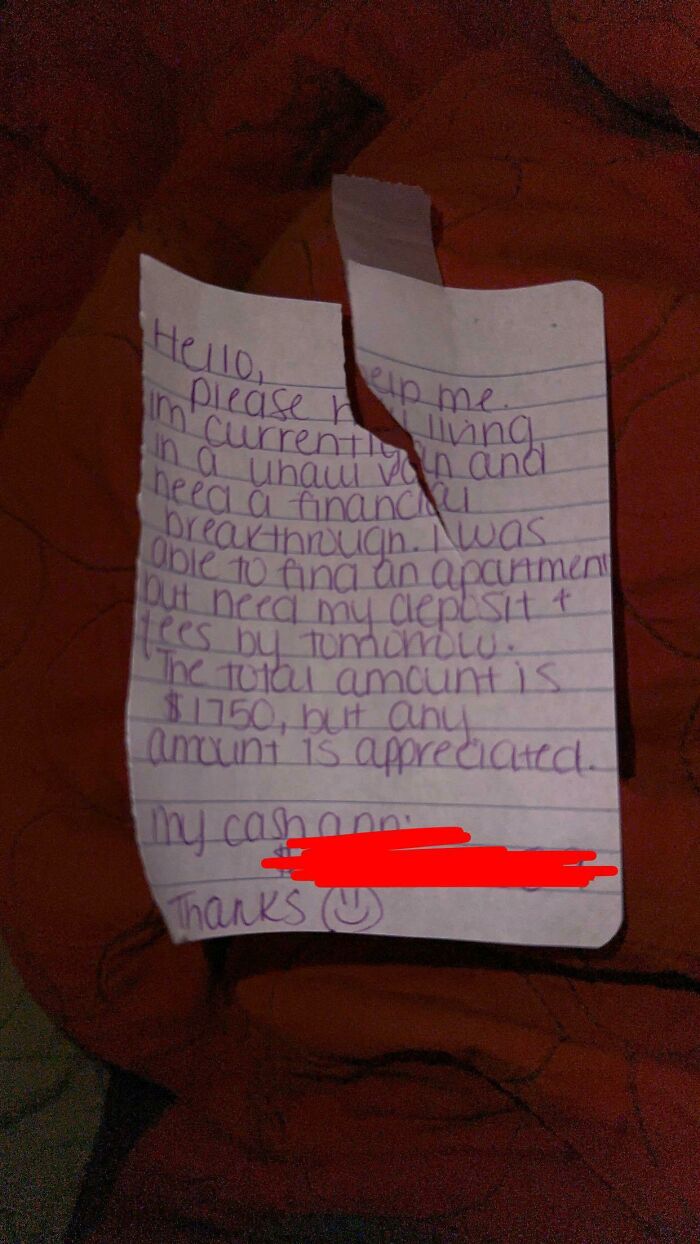 Hello,
please help me.
im currently living
in a uhaul van and
need a financial
breakthrough. I was
able to find an apartment
but need my deposit +
fees by tomorrow.
The total amount is
$1750, but any
amount is appreciated.
my cash app:
$
Thanks